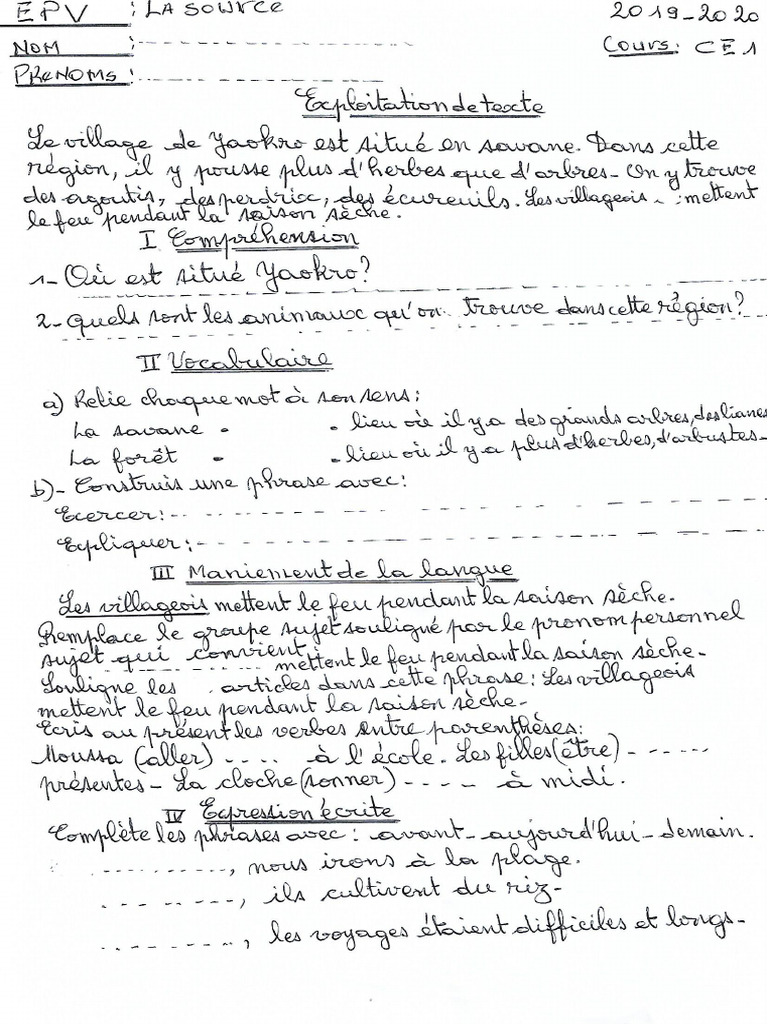 EPV : LA SOURCE 2019-2020
NOM : Cours : CE1
PRENOMS :
Exploitation de texte
Le village de Yaokro est situé en savane. Dans cette
région, il y pousse plus d'herbes que d'arbres. On y trouve
des agoutis, des perdrix, des écureuils. Les villageois mettent
le feu pendant la saison sèche.
I Compréhension
1- Où est situé Yaokro?
2- Quels sont les animaux qu'on trouve dans cette région?
II Vocabulaire
a) Relie chaque mot à son sens :
La savane • • lieu où il y a des grands arbres, des lianes
La forêt • • lieu où il y a plus d'herbes, d'arbustes-
b)- Construis une phrase avec :
Exercer : - - - -
Expliquer : - - - -
III Maniement de la langue
Les villageois mettent le feu pendant la saison sèche.
Remplace le groupe sujet souligné par le pronom personnel
sujet qui convient
.............. mettent le feu pendant la saison sèche-
Souligne les articles dans cette phrase : Les villageois
mettent le feu pendant la saison sèche-
Ecris au présent les verbes entre parenthèses :
Moussa (aller) ..... à l'école. Les filles (être) ------
présentes- La cloche (sonner) ----- à midi.
IV Expression écrite
Complète les phrases avec : avant- aujourd'hui- demain.
.............., nous irons à la plage.
.............., ils cultivent du riz-
.............., les voyages étaient difficiles et longs-